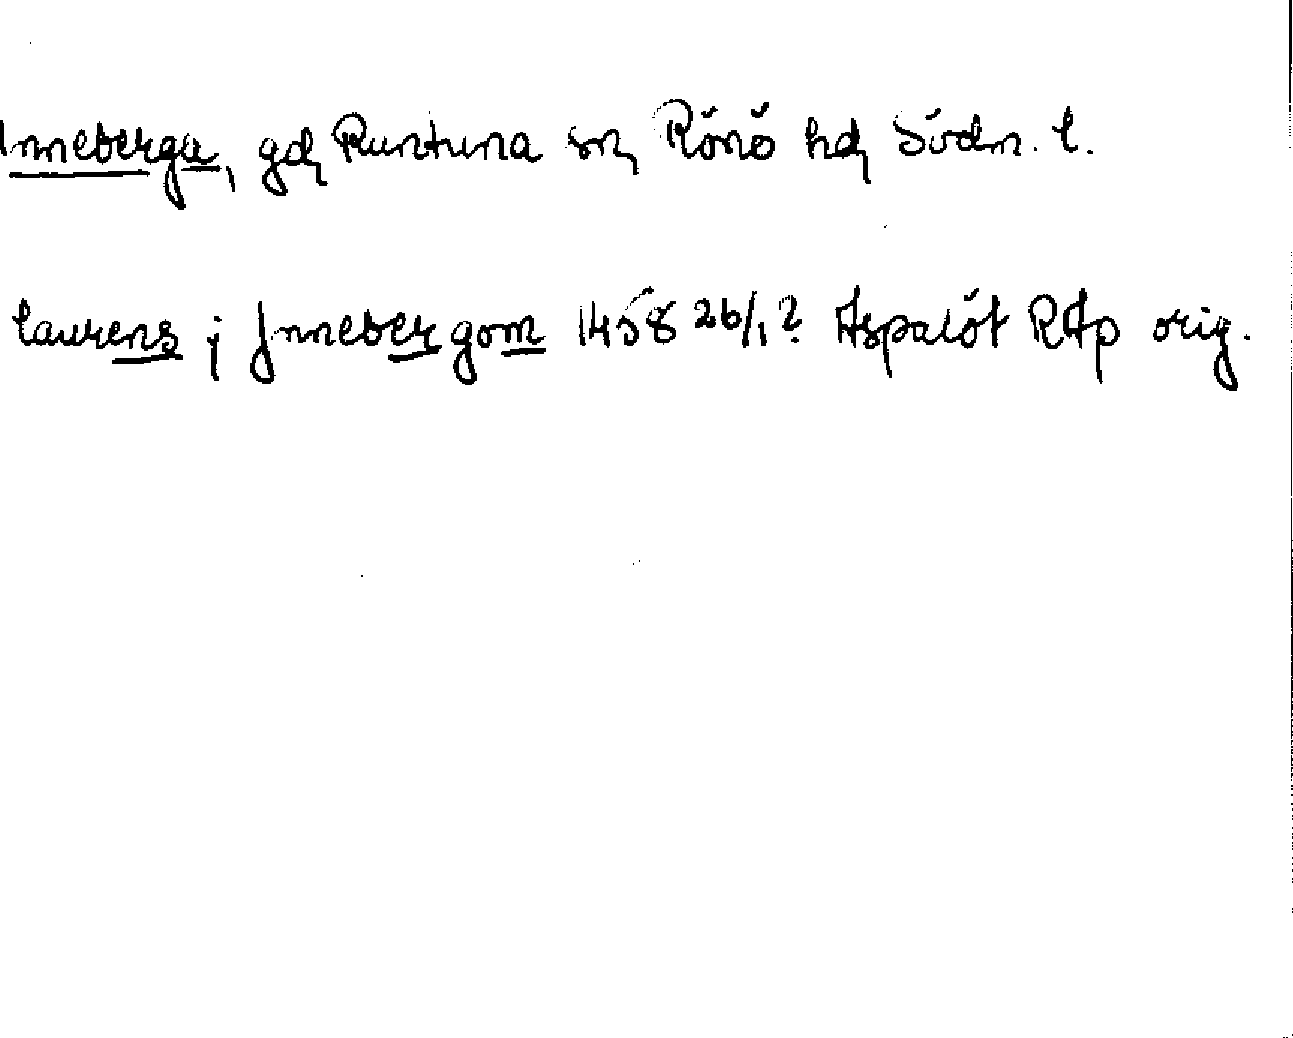 Inneberga, gd, Runtuna sn, Rönö hd, Södm. l.
laurens j Jnnebergom 1458 26/1? Aspalöt RAp orig.